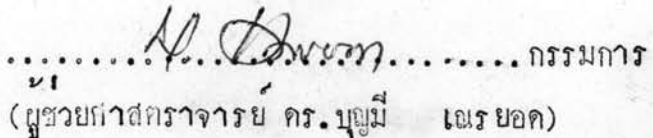 ........................ กรรมการ
(ผู้ช่วยศาสตราจารย์ ดร. บุญมี เณรยอด)